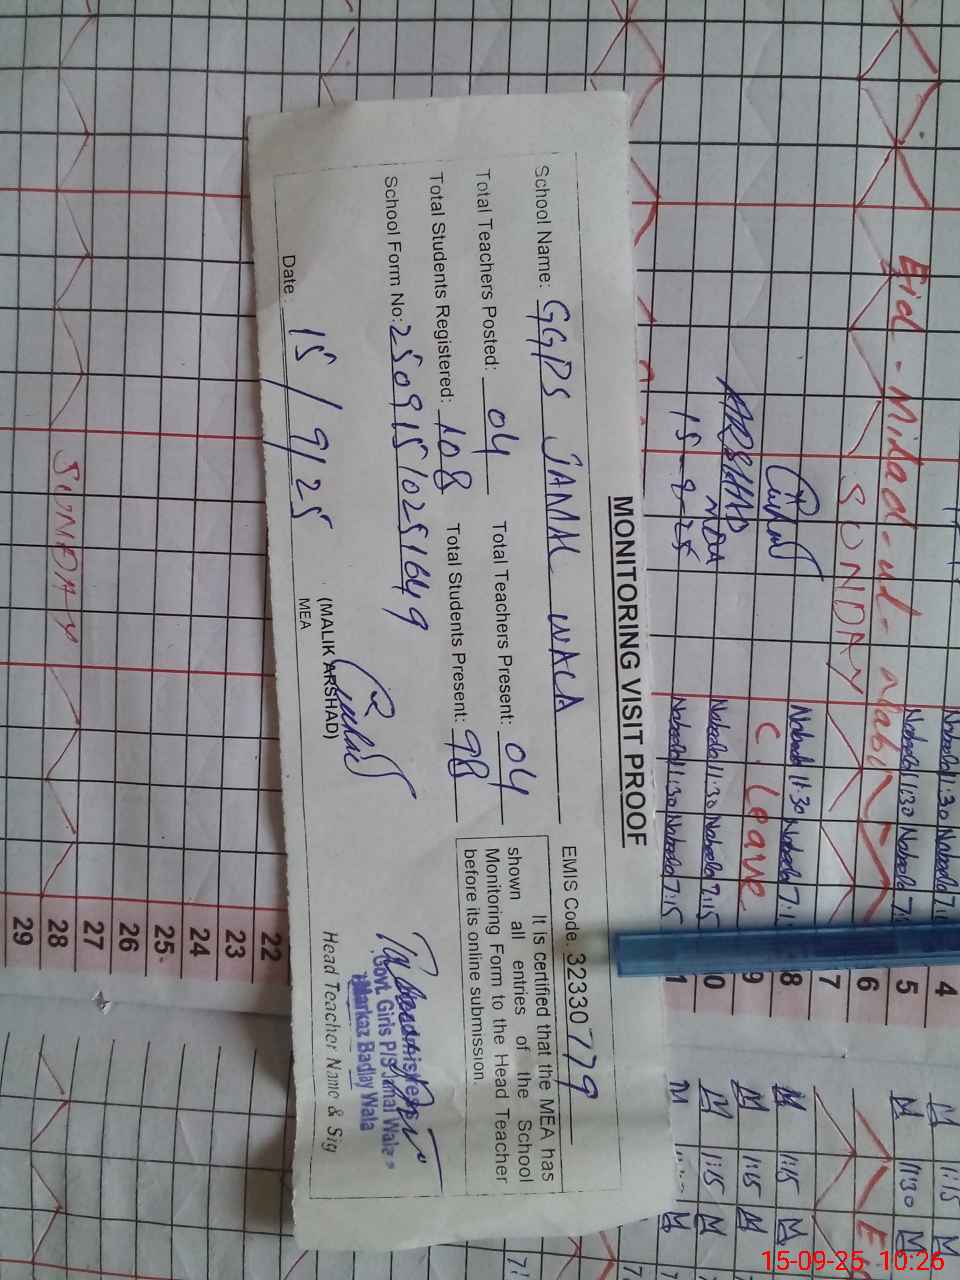 MONITORING VISIT PROOF
School Name: GGPS JAMAL WALA EMIS Code: 32330779
Total Teachers Posted: 04 Total Teachers Present: 04
Total Students Registered: 108 Total Students Present: 98
School Form No: 25091510251649
It is certified that the MEA has
shown all entries of the School
Monitoring Form to the Head Teacher
before its online submission.
Date: 15/9/25
(MALIK ARSHAD)
MEA
Govt. Girls P/S Jamal Wala
Markaz Badlay Wala
Head Teacher Name & Sig
Eid-Milad-ul-Nabi
SUNDAY
ARSHAD
MEA
15-9-25
C. Leave
Nabeela 11:30 Nabeela 7:15
Nabeela 11:30 Nabeela 7:15
Nabeela 11:30 Nabeela
Nabeela 11:30 Nabeela
Nabeela 11:30 Nabeela
4
5
6
7
8
9
10
22
23
24
25
26
27
28
29
SUNDAY
M 1:15 M
M 11:30 M
M 1:15 M
M 1:15 M
M 1:15 M
15-09-25 10:26